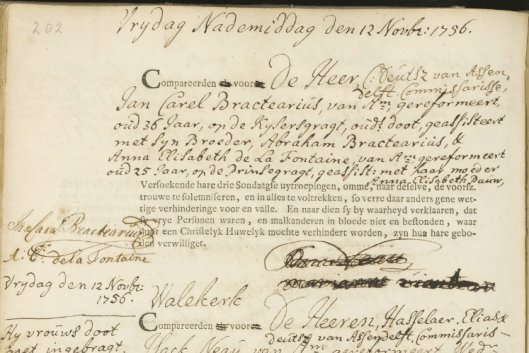 202
Vrydag Nademiddag den 12 Novbr: 1756.
Compareerden als vooren De Heer C: Deutsz van Assen,
delft, Commissarisse,
Jan Carel Bractearius, van Am, gereformeert,
oud 36 Jaar, op de Kysersgragt, ouds doot, geassisteert
met syn Broeder, Abraham Bractearius, &
Anna Elisabeth de La Fontaine, van Am gereformeert
oud 25 Jaar, op de Prinsegragt, geassist: met haar moeder
Anna Elisabeth
Versoekende hare drie Sondaagse uytroepingen, omme, naar deselve, de voorsz.
trouwe te solemniseren, en in alles te voltrekken, so verre daar anders gene wet-
tige verhinderinge voor en valle. En naar dien sy by waarheyd verklaarden, dat
sy vrye Personen waren, en malkanderen in bloede niet en bestonden, waar
door een Christelyk Huwelyk mochte verhindert worden, zyn hun hare gebo-
den verwilliget.
Bractearius
A: E: de la Fontaine
Vrydag den 12 Novbr:
1756.
Walekerk
Compareerden als vooren De Heeren, Hasselaer, Elias &
Deutz van Assendelft, Commissaris-
Hy vrouws doot